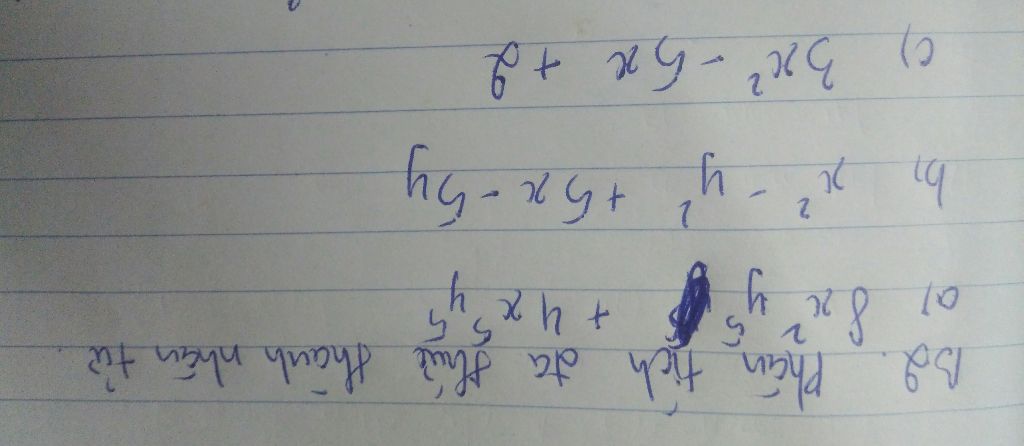 B2. Phân tích đa thức thành nhân tử.
a) 8x²y⁵ + 4x⁵y⁵
b) x² - y² + 5x - 5y
c) 3x² - 5x + 2